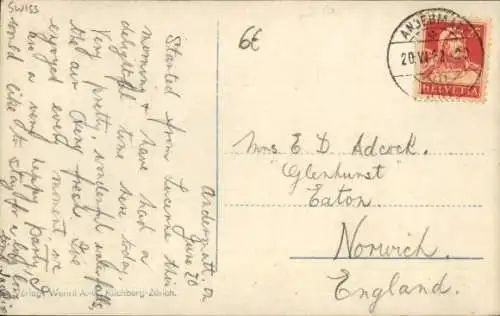 SWISS
6€
ANDERMATT
20.VI.
HELVETIA
Andermatt,
June 20
Started from Lucerne this
morning & have had a
delightful time here today.
Very pretty, wonderful waterfalls,
the air very fresh. I've
enjoyed every moment, we
are a very happy party &
would like to stay for a long time
Mrs E D Adcock.
"Glenhurst"
Eaton.
Norwich.
England.
Verlag Wehrli A.-G. Kilchberg-Zürich.